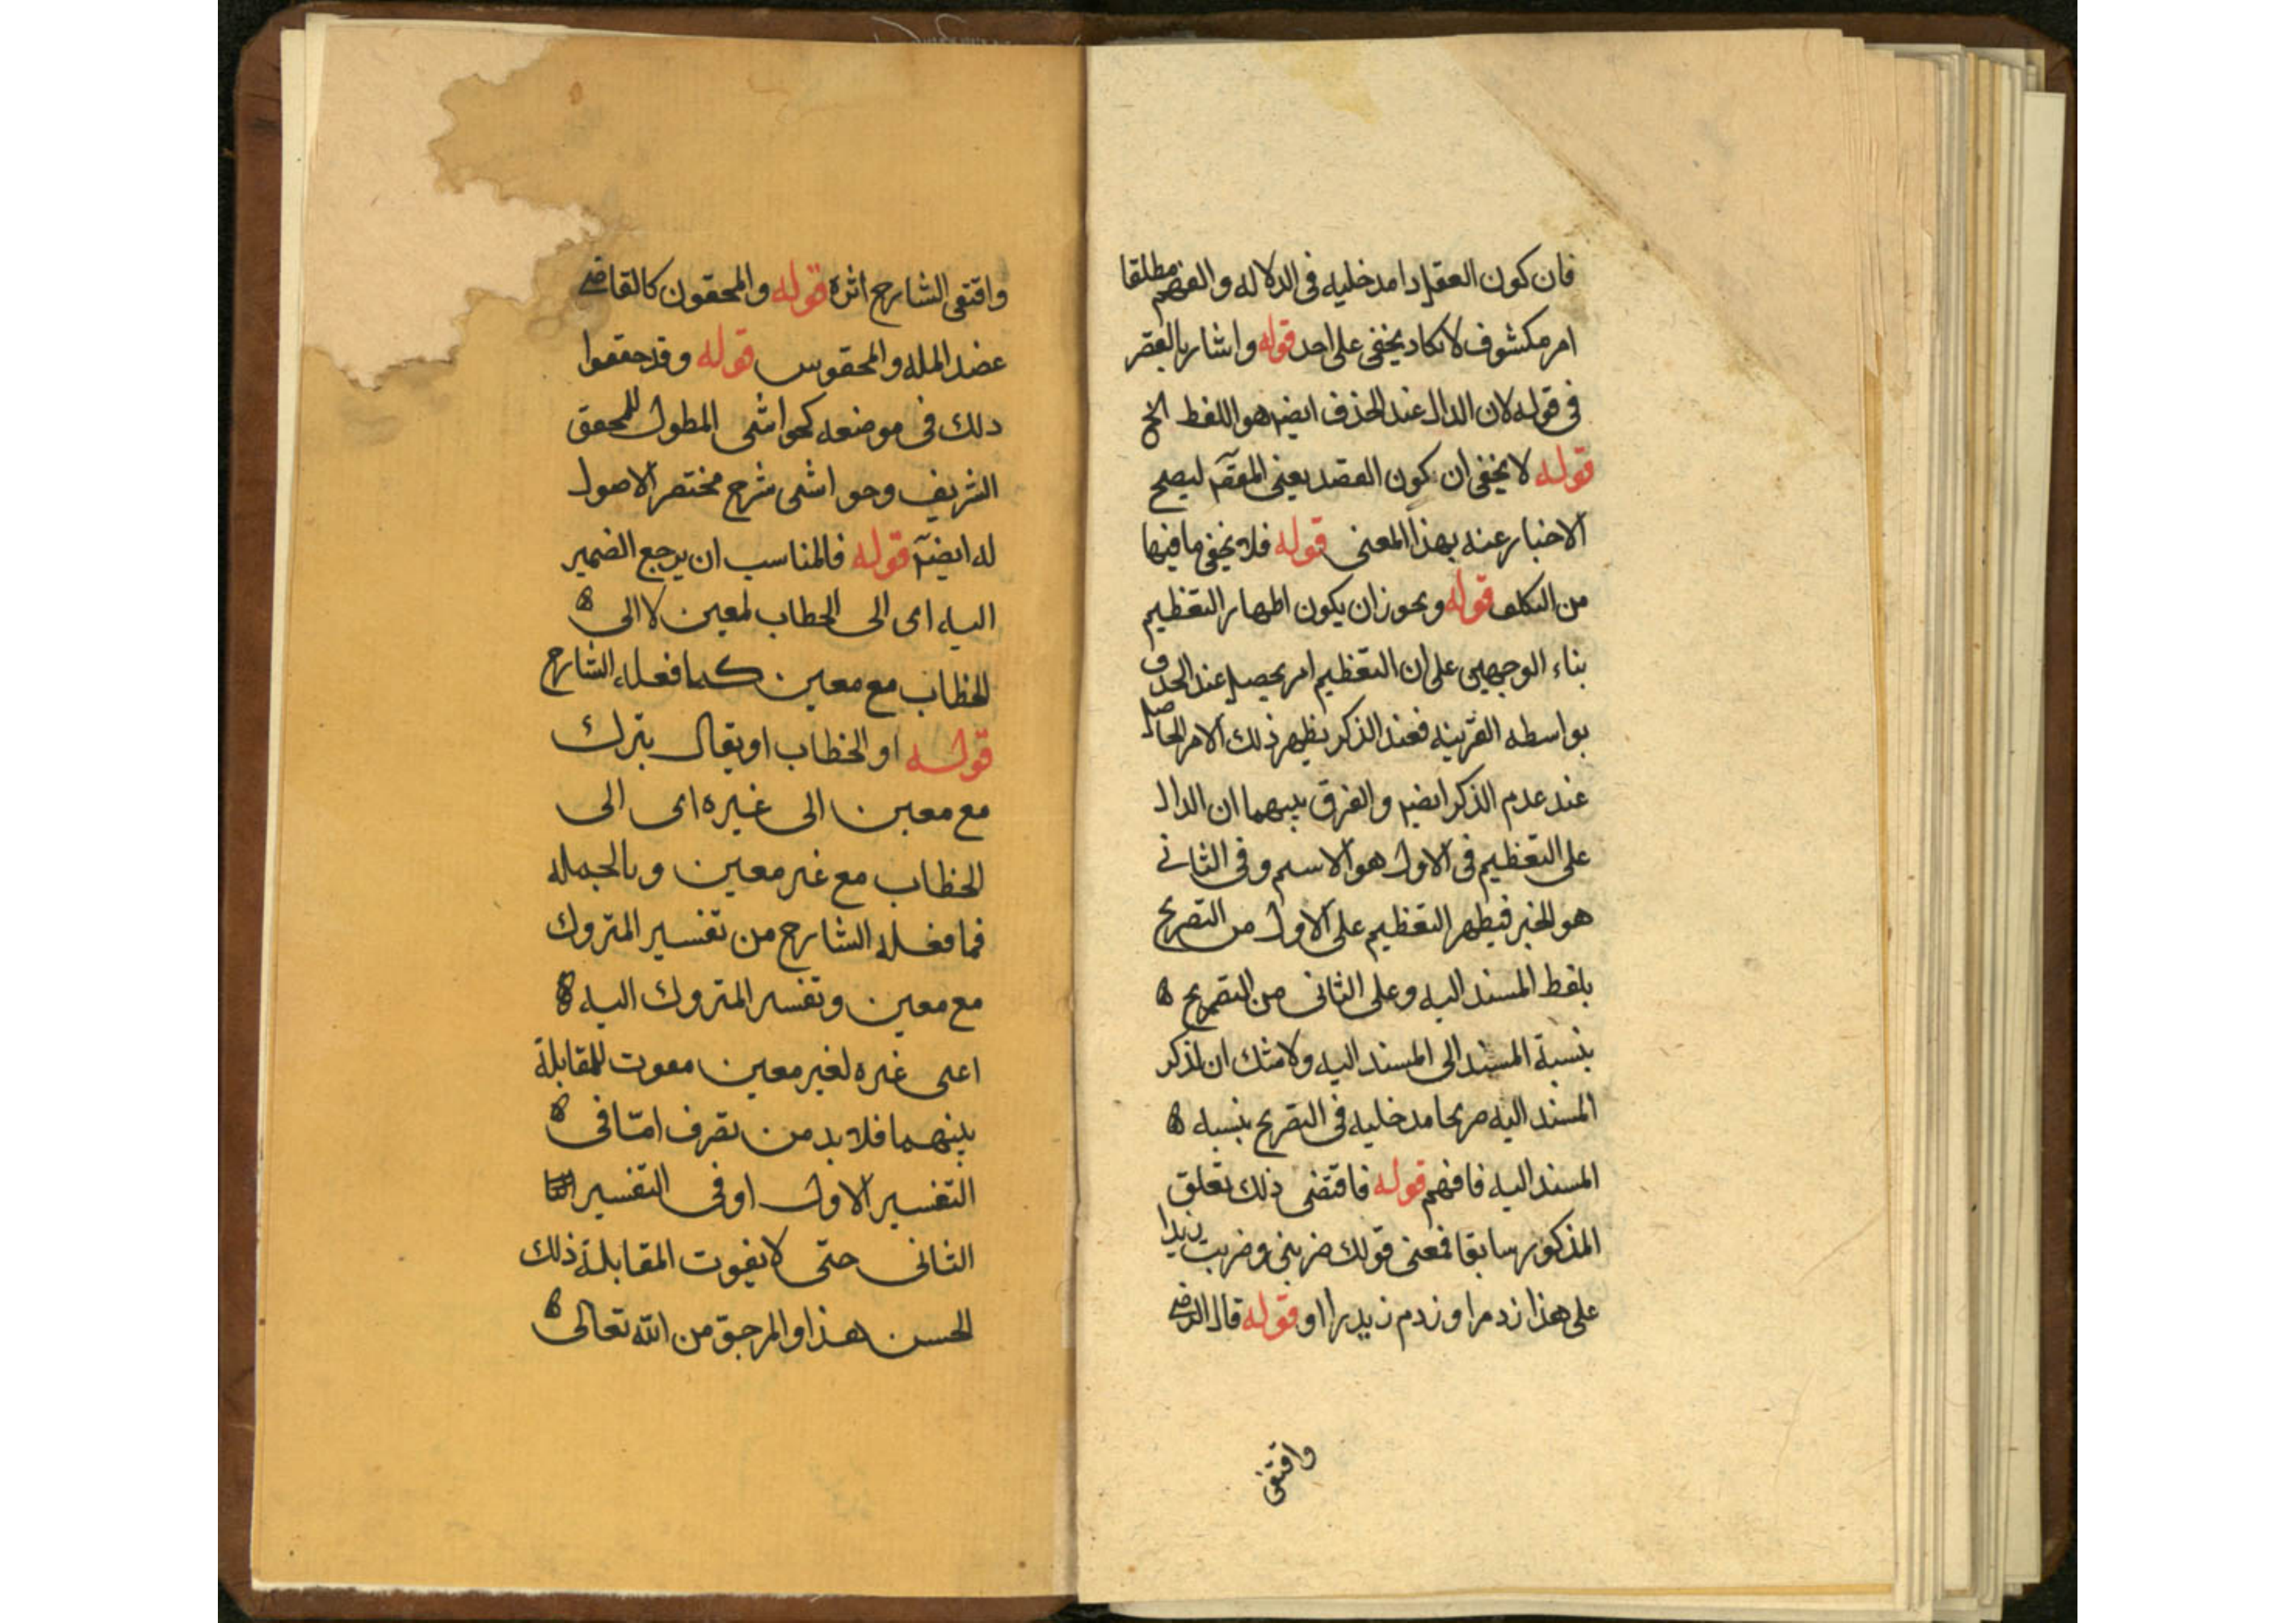 فان كون العقل دا مدخليه فى الدلاله والفهم مطلقا
امر مكشوف لا يكاد يخفى على احد قوله واشار بالقصر
فى قوله لان الدال عند الحذف ايضا هو اللفظ الخ
قوله لا يخفى ان كون القصد بمعنى ليصح
الاخبار عنه بهذا المعنى قوله فلا يخفى ما فيها
من التكلف قوله ويجوز ان يكون اظهار التعظيم
بناء الوجهين على ان التعظيم امر يحصل عند الحذف
بواسطه القرينه فعند الذكر يظهر ذلك الامر الحاصل
عند عدم الذكر ايضا والفرق بينهما ان الدال
على التعظيم فى الاول هو الاسم وفى الثانے
هو الخبر فيظهر التعظيم على الاول من التصريح
بلفظ المسند اليه وعلى الثانى من التصريح
بنسبة المسند الى المسند اليه ولا شك ان لذكر
المسند اليه صريحا مدخليه فى التصريح بنسبه
المسند اليه فافهم قوله فاقتضى ذلك تعلق
المذكور سابقا فمعنى قولك ضربنى وضربت زيدا
على هذا زد مرا وزدم زيد را او قوله قال الرضى
واقتفى
واقتفى الشارح اثره قوله والمحققون كالقاضے
عضد المله والمحقق قوله وقد حققوا
ذلك فى موضعه كحواشى المطول للمحقق
الشريف وحواشى شرح مختصر الاصول
له ايضا قوله فالمناسب ان يرجع الضمير
اليه اى الى الخطاب لمعين لا الى
الخطاب مع معين كما فعله الشارح
قوله او الخطاب او يقال بترك
مع معين الى غيره اى الى
الخطاب مع غير معين وبالجمله
فما فعله الشارح من تفسير المتروك
مع معين وتفسير المتروك اليه
اعنى غيره لغير معين مفوت للمقابلة
بينهما فلا بد من تصرف امّا فى
التفسير الاول او فى التفسير
الثانى حتّى لا يفوت المقابلة ذلك
الحسن هذا والمرجوّ من الله تعالى